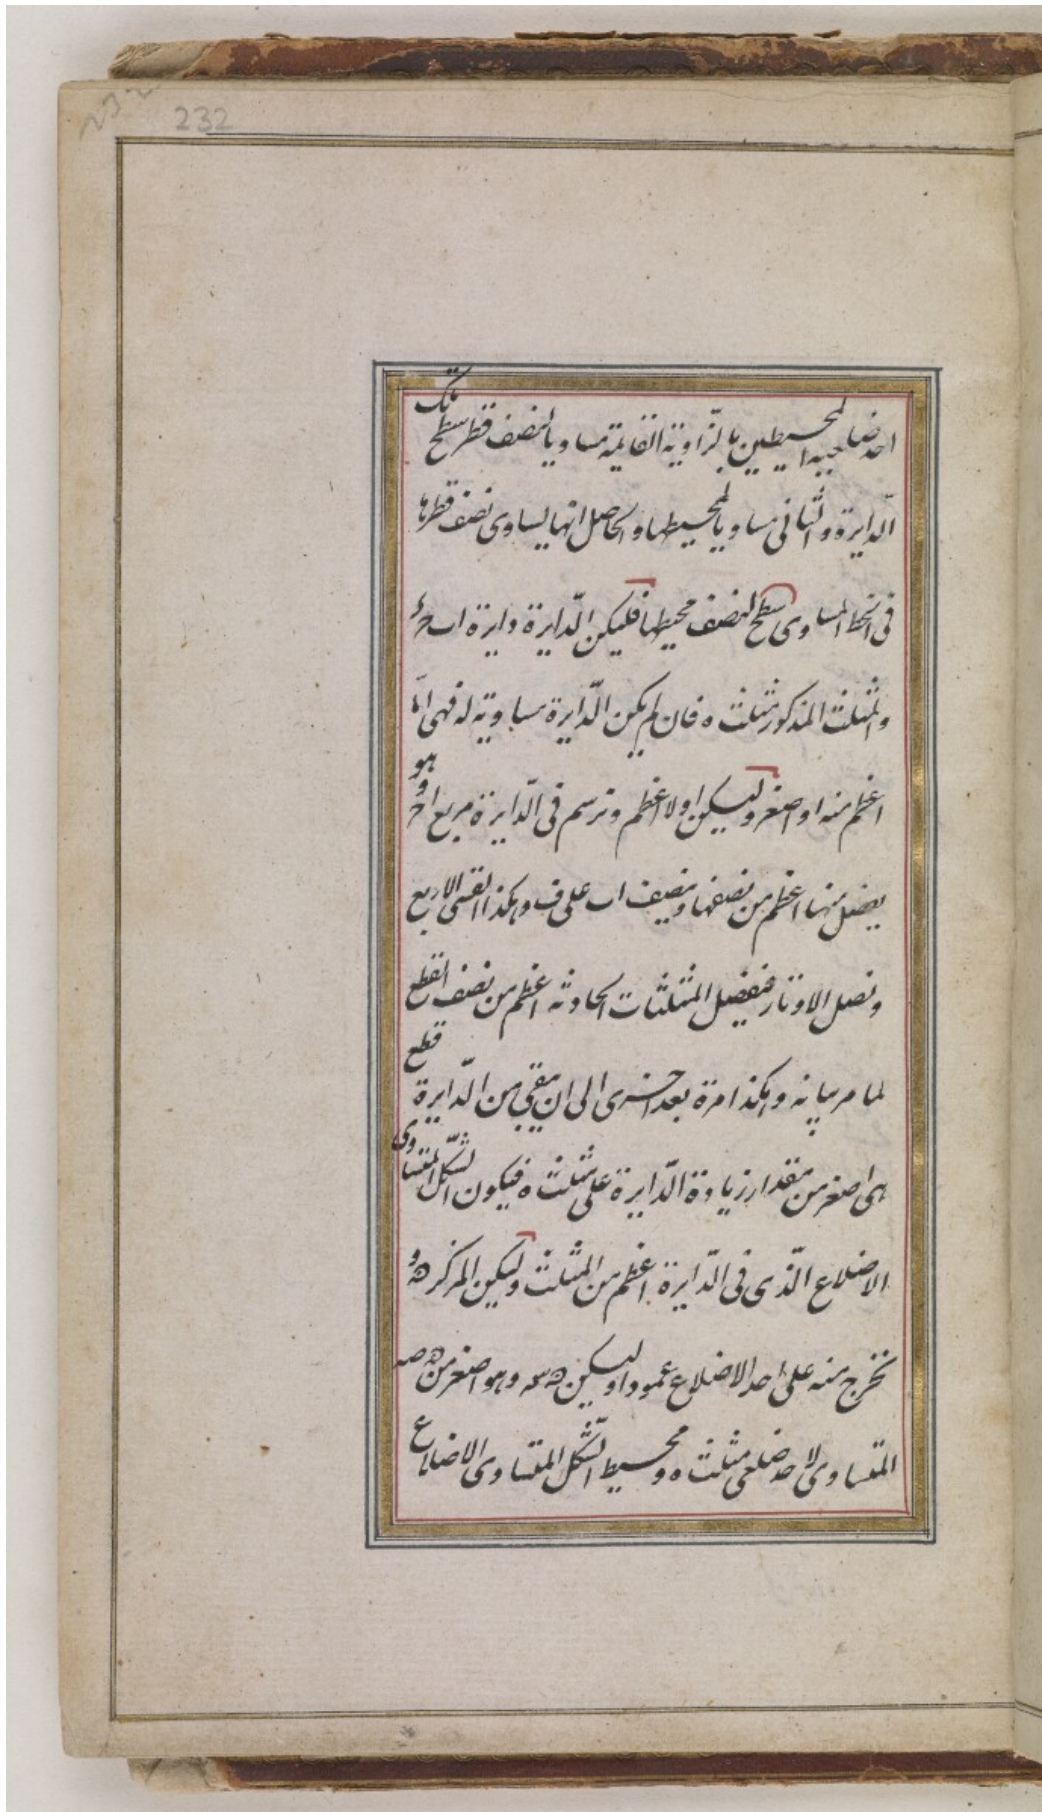 232
احد ضلعيه المحيطين بالزّاوية القايمة مساويا لنصف قطر تلك
الدّايرة والثانى مساويا لمحيطها والحاصل انها يساوى سطح نصف قطرها
فى الخط المساوى لنصف محيطها فليكن الدّايرة دايرة اب حـ ء
والمثلث المذكور مثلث ه فان لم يكن الدّايرة مساوية له فهى امّا
اعظم منه او اصغر وليكن اولا اعظم ونرسم فى الدّايرة مربع اح وهو
يفصل منها اعظم من نصفها وننصف اب على ف وهكذا القسى الاربع
ونصل الاوتار فنفصل المثلثات الحادثه اعظم من نصف القطع
لما مر بيانه وهكذا مرة بعد اخرى الى ان يبقى من الدّايرة قطع
هى اصغر من مقدار زيادة الدّايرة على مثلث ه فيكون الشكل المتساوى
الاضلاع الّذى فى الدّايرة اعظم من المثلث وليكن المركز و
نخرج منه على احد الاضلاع عمودا وليكن وهو اصغر من
المتساوى لاحد ضلعى مثلث ه ومحيط الشّكل المتساوى الاضلاع